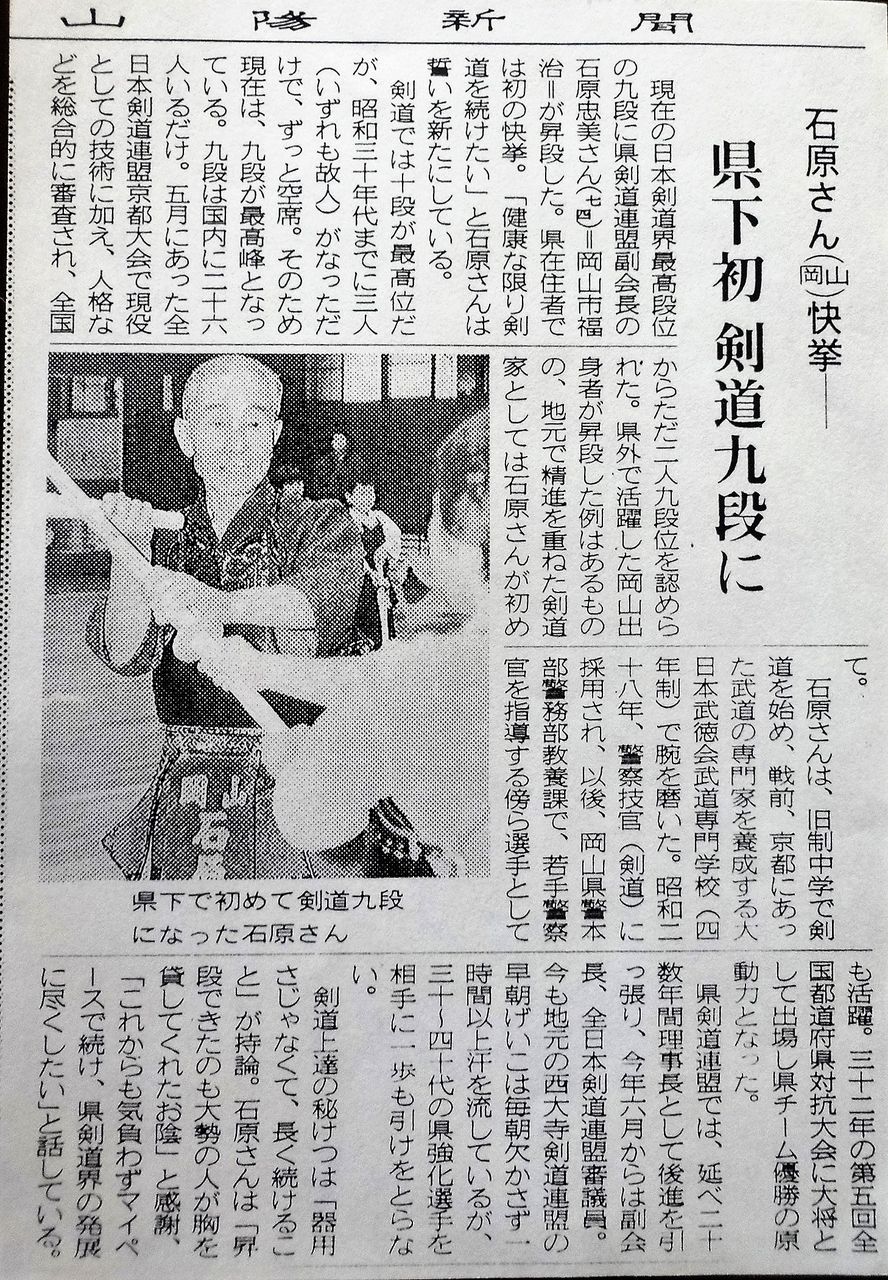 山陽新聞
石原さん(岡山)快挙――
県下初 剣道九段に
現在の日本剣道界最高段位
の九段に県剣道連盟副会長の
石原忠美さん(七四)＝岡山市福
治＝が昇段した。県在住者で
は初の快挙。「健康な限り剣
道を続けたい」と石原さんは
誓いを新たにしている。
剣道では十段が最高位だ
が、昭和三十年代までに三人
(いずれも故人)がなっただ
けで、ずっと空席。そのため
現在は、九段が最高峰となっ
ている。九段は国内に二十六
人いるだけ。五月にあった全
日本剣道連盟京都大会で現役
としての技術に加え、人格な
どを総合的に審査され、全国
からただ二人九段位を認めら
れた。県外で活躍した岡山出
身者が昇段した例はあるもの
の、地元で精進を重ねた剣道
家としては石原さんが初め
て。
石原さんは、旧制中学で剣
道を始め、戦前、京都にあっ
た武道の専門家を養成する大
日本武徳会武道専門学校(四
年制)で腕を磨いた。昭和二
十八年、警察技官(剣道)に
採用され、以後、岡山県警本
部警務部教養課で、若手警察
官を指導する傍ら選手として
も活躍。三十二年の第五回全
国都道府県対抗大会に大将と
して出場し県チーム優勝の原
動力となった。
県剣道連盟では、延べ二十
数年間理事長として後進を引
っ張り、今年六月からは副会
長、全日本剣道連盟審議員。
今も地元の西大寺剣道連盟の
早朝げいこは毎朝欠かさず一
時間以上汗を流しているが、
三十～四十代の県強化選手を
相手に一歩も引けをとらな
い。
剣道上達の秘けつは「器用
さじゃなくて、長く続けるこ
と」が持論。石原さんは「昇
段できたのも大勢の人が胸を
貸してくれたお陰」と感謝、
「これからも気負わずマイペ
ースで続け、県剣道界の発展
に尽くしたい」と話している。
県下で初めて剣道九段
になった石原さん
岡山
石原